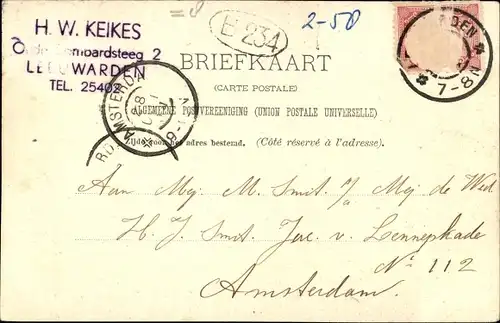 H. W. KEIKES
Oude Lombardsteeg 2
LEEUWARDEN
TEL. 25402
=8
B 234
2-50
DEN
7-8N
BRIEFKAART
(CARTE POSTALE)
ALGEMEENE POSTVEREENIGING (UNION POSTALE UNIVERSELLE)
Zijde voor het adres bestemd. (Côté réservé à l'adresse.)
AMSTERDAM
Aan Mej: M. Smit p/a Mej de Wed
H. J. Smit Jac. v. Lennepkade
No 112
Amsterdam.